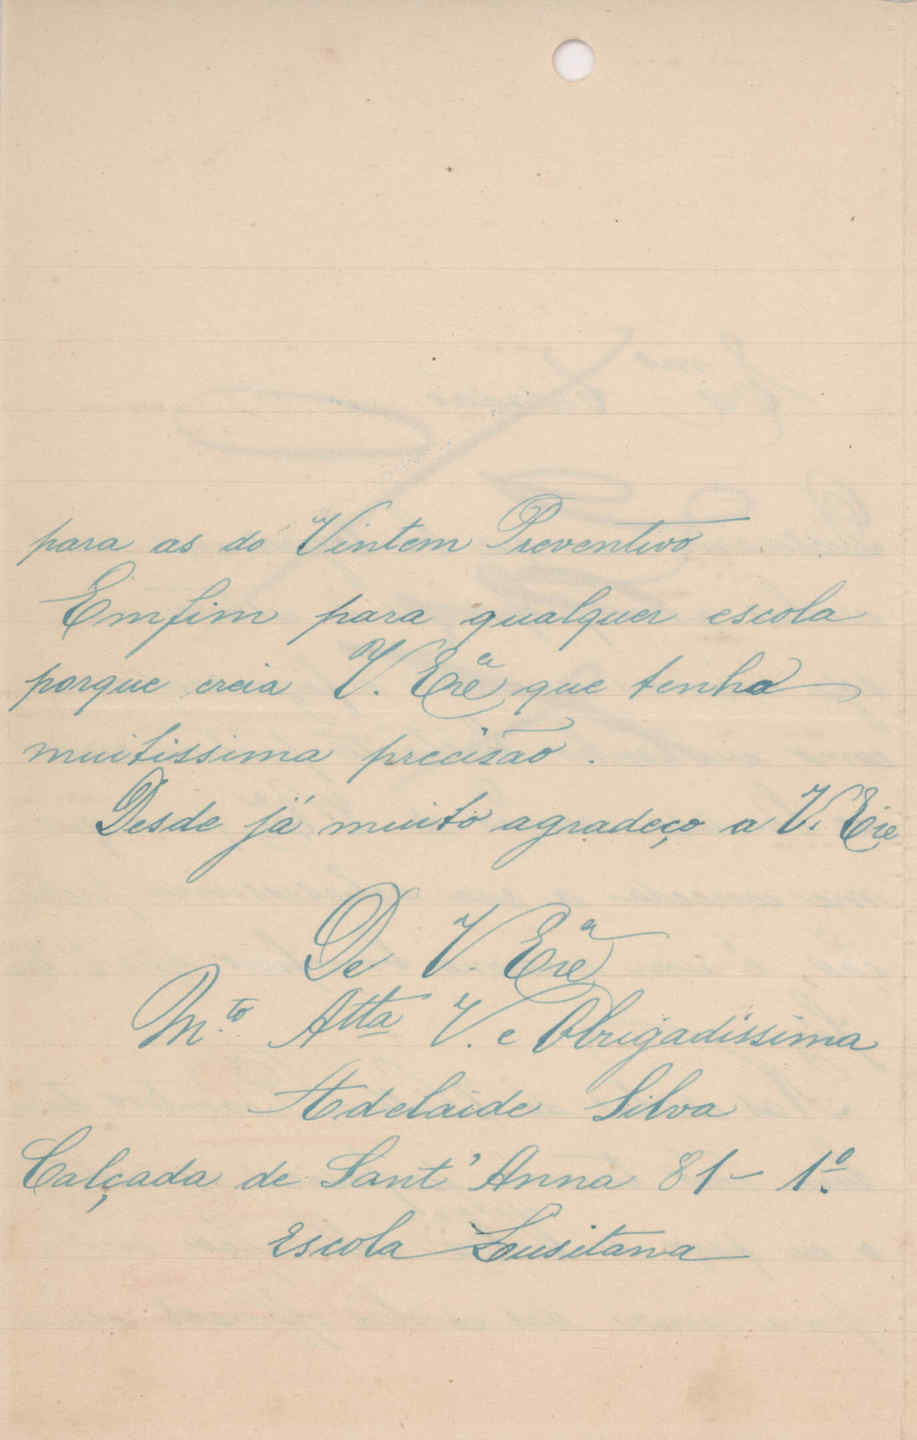 para as do Vintem Preventivo
Emfim para qualquer escola
porque creia V. Exª que tenho
muitissima precisão.
Desde já muito agradeço a V. Exe
De V. Exª
M.to Attª V. e Obrigadissima
Adelaide Silva
Calçada de Sant'Anna 81 – 1.º
Escola Lusitana